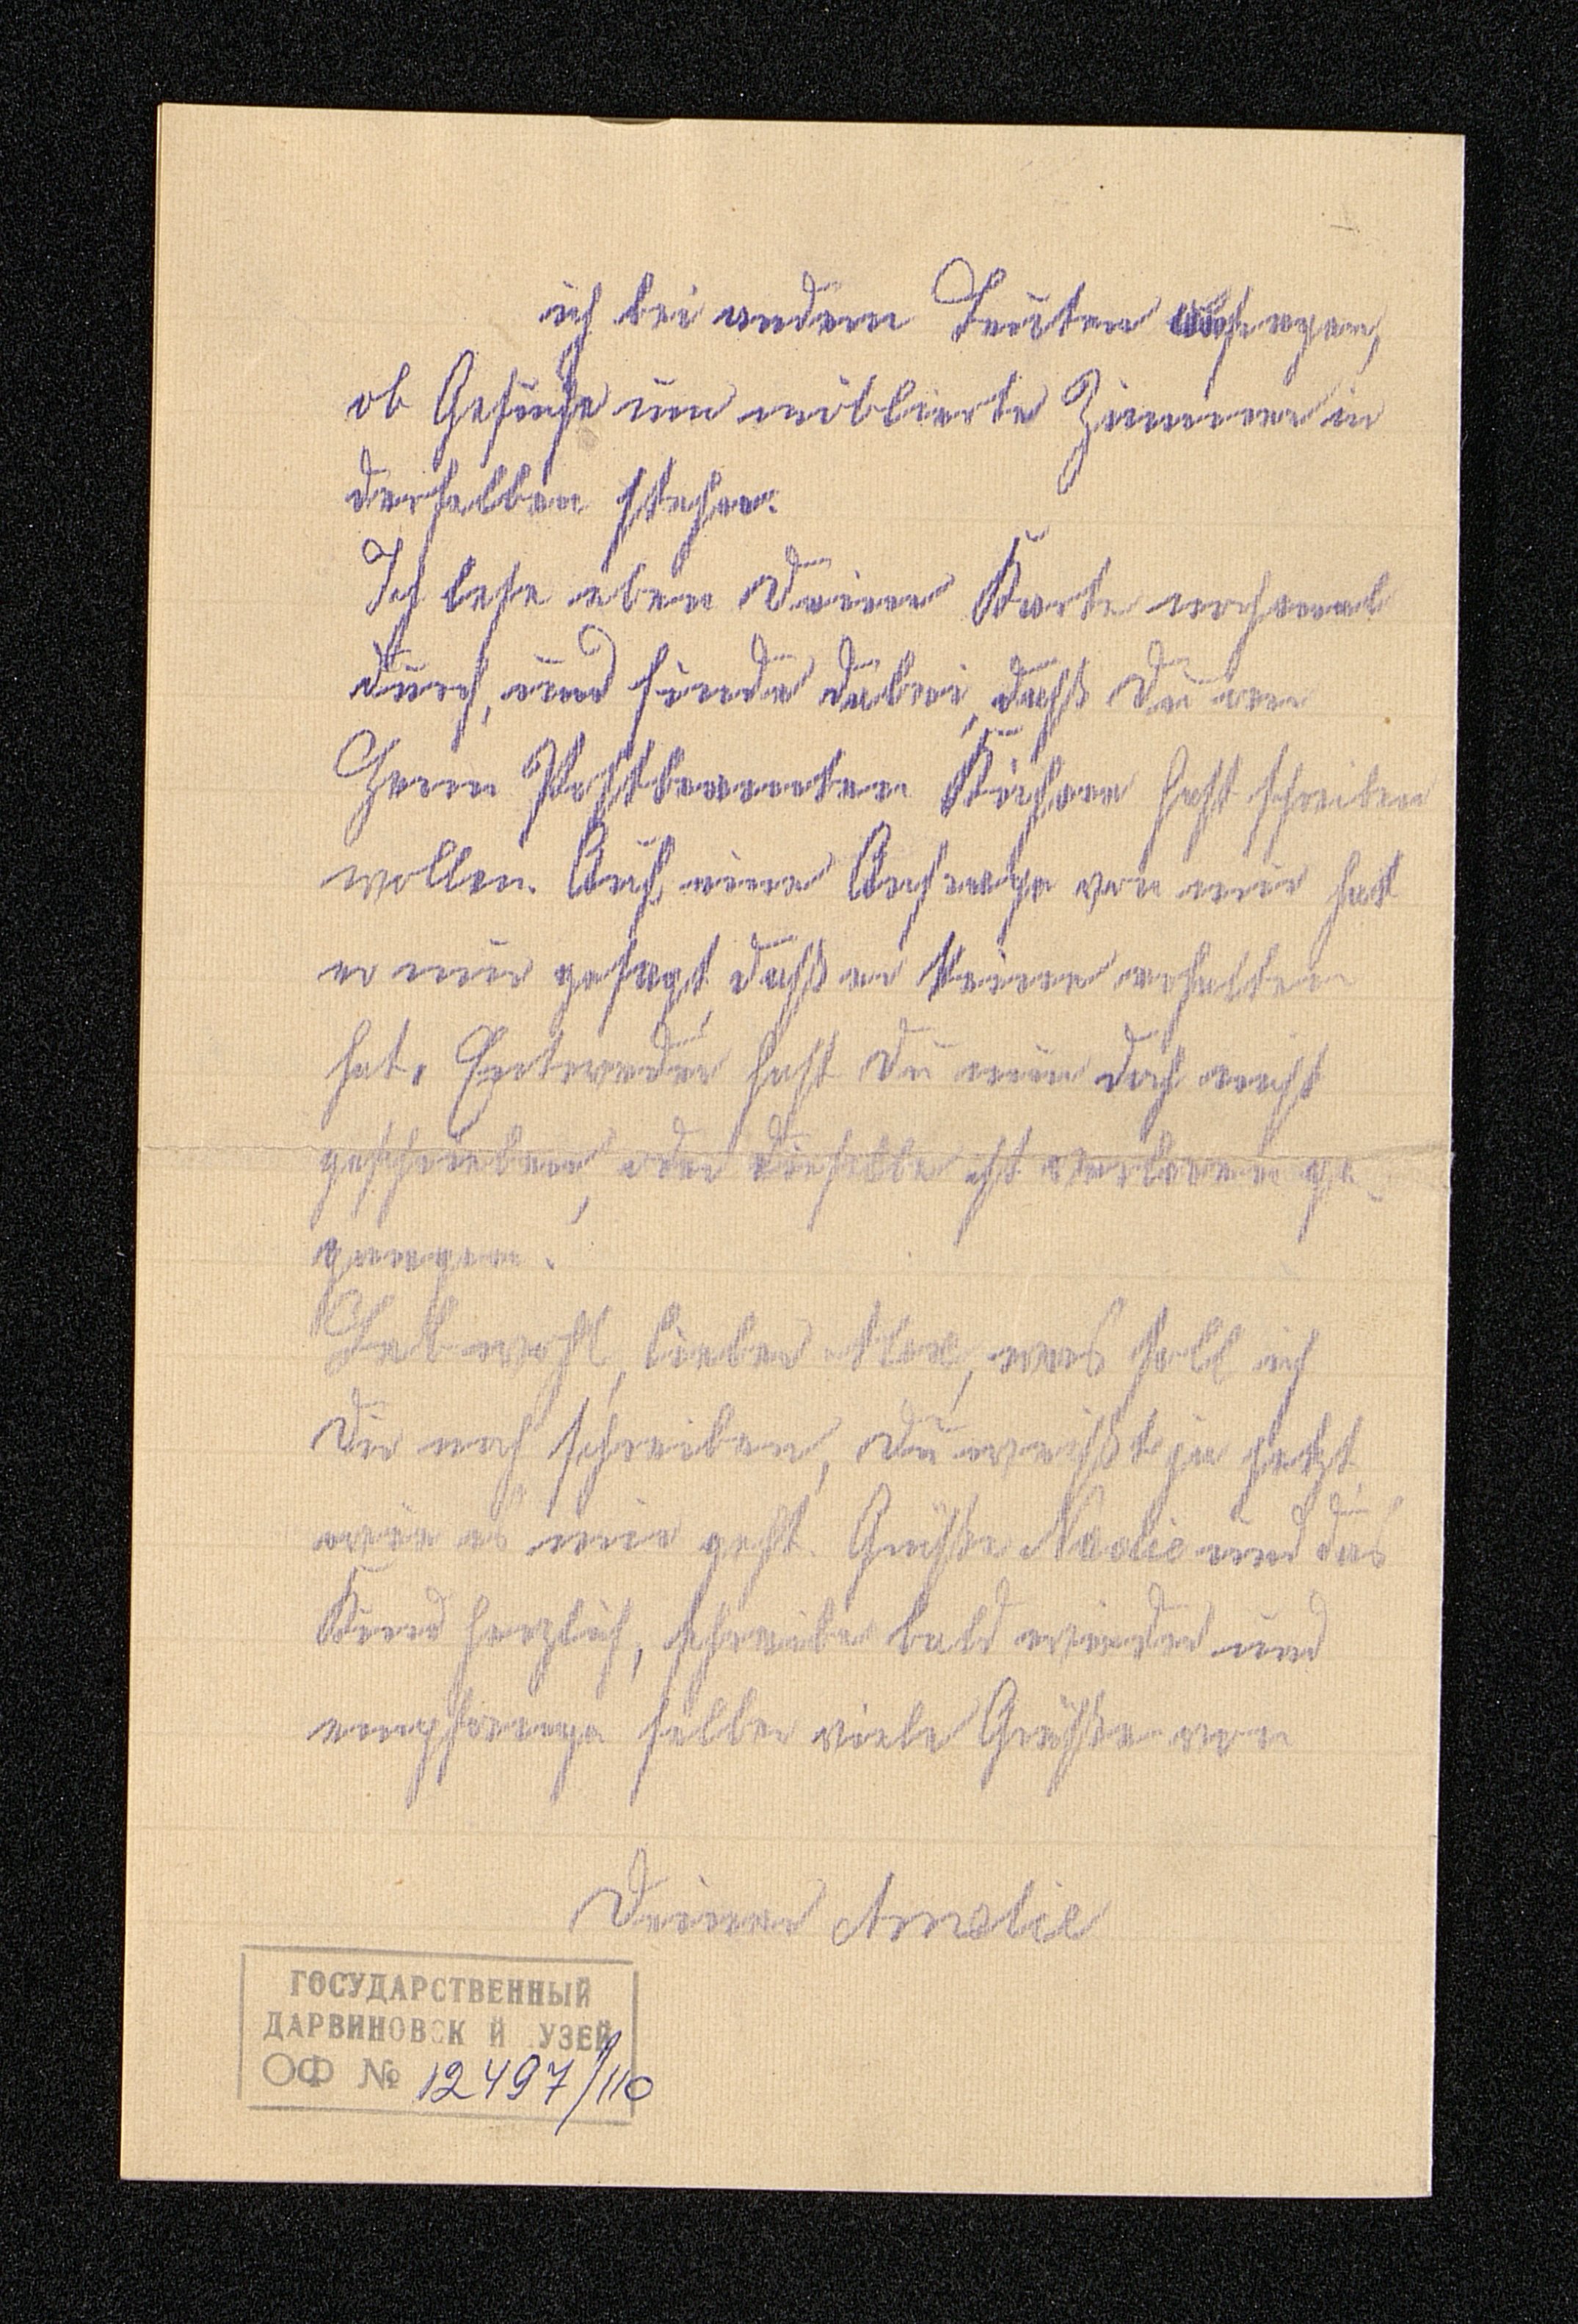 ich bei andern Leuten anfragen,
ob Gesuche um möblierte Zimmer in
derselben stehen.
Ich lese eben Deine Karte nochmal
durch, und finde dabei, dass Du an
Herrn Postbeamten hast schreiben
wollen. Auf eine Anfrage von mir hat
er mir gesagt, daß er keine erhalten
hat. Entweder hast Du nun doch nicht
geschrieben, oder dieselbe ist verloren ge-
gangen.
Leb wohl, lieber Alex, was soll ich
Dir noch schreiben, Du weißt ja jetzt
wie es mir geht. Grüße Nadie und das
Kind herzlich, schreibe bald wieder und
empfange selber viele Grüße von
Deiner Amelie
ГОСУДАРСТВЕННЫЙ
ДАРВИНОВСК Й УЗЕЙ
ОФ № 12497/110